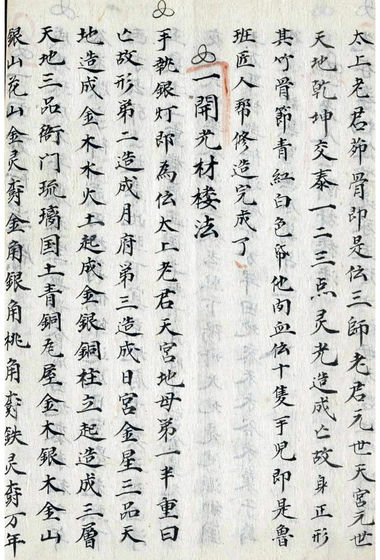 太上老君茆骨即是伝三師老君元世天宮元世
天地乾坤交泰一二三点灵光造成亡故身正形
其竹骨節青紅白色帋他向血伝十隻手児即是魯
班匠人帮修造完成了
一開光材楼法
手執銀灯即為伝太上老君天宮地母弟一半重曰
亡故形弟二造成月府弟三造成日宮金星三品天
地造成金木水火土起成金銀銅柱立起造成三層
天地三品衙门琉璃国土青銅瓦屋金木銀木金山
銀山花山金灵金角銀角桃角鉄灵万年